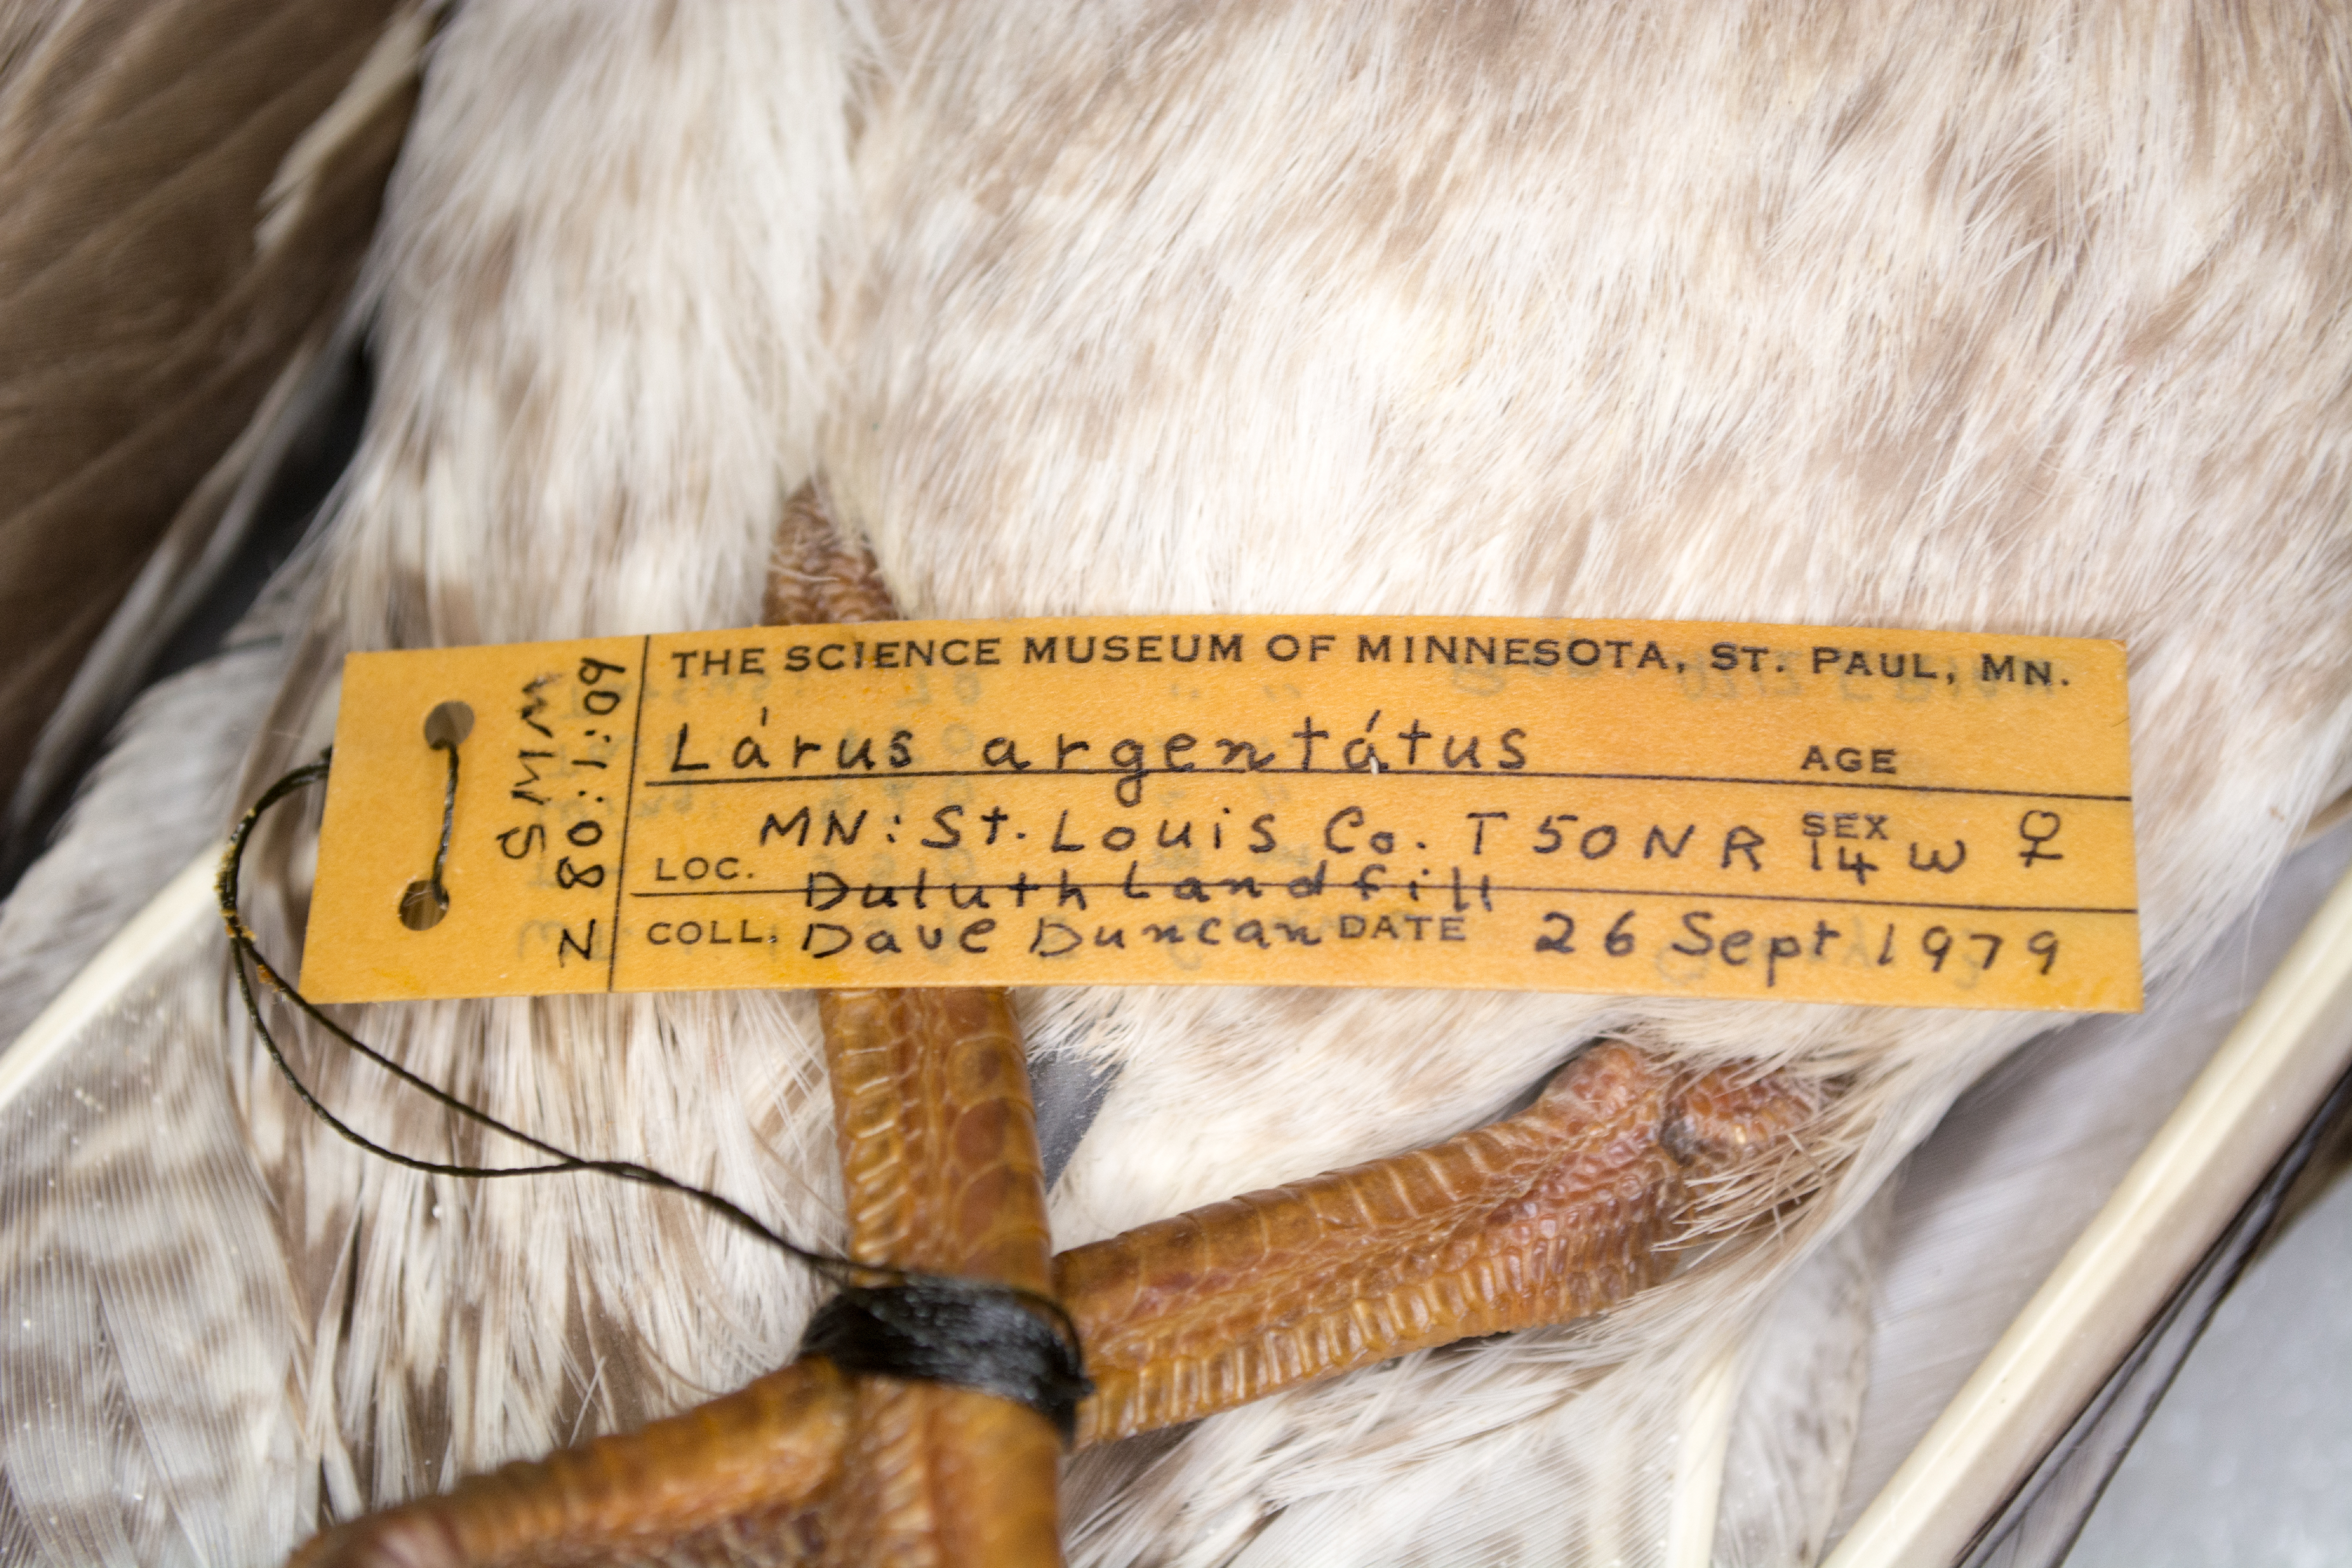 SMM
Z 80:1:09
THE SCIENCE MUSEUM OF MINNESOTA, ST. PAUL, MN.
Lárus argentátus AGE
LOC. MN: St. Louis Co. T 50 N R 14 W SEX ♀
Duluth Landfill
COLL. Dave Duncan DATE 26 Sept 1979